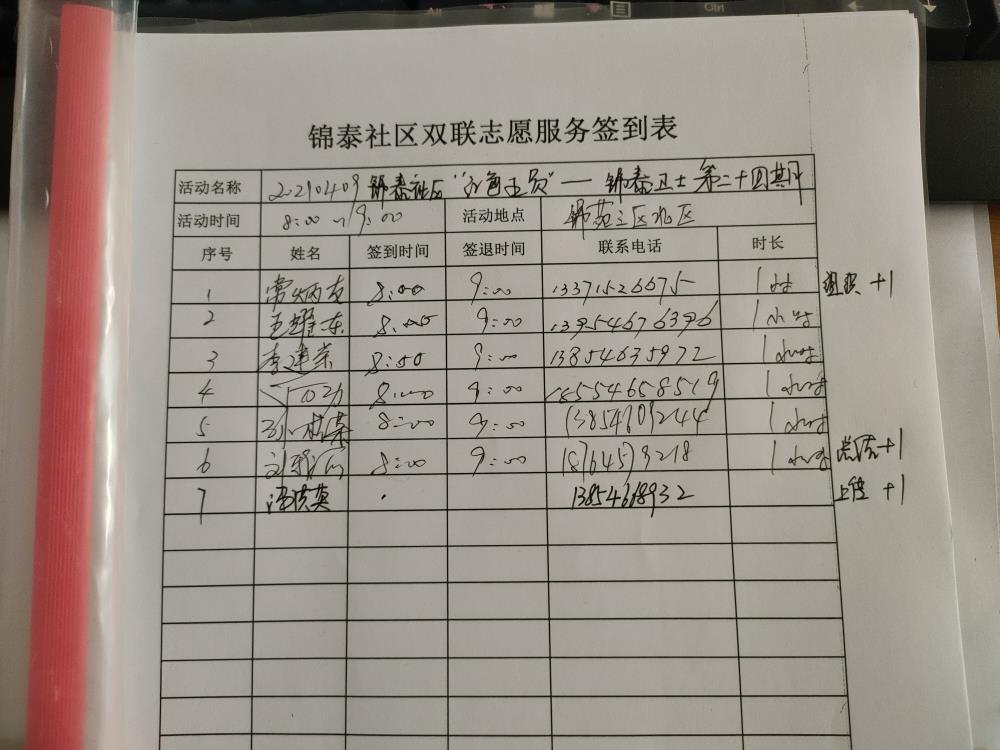 锦泰社区双联志愿服务签到表
活动名称 20210409 锦泰社区"红色王员"— 锦泰卫士第二十四期
活动时间 8:00 9:00 活动地点 锦苑三区北区
序号 姓名 签到时间 签退时间 联系电话 时长
1 常炳友 8:00 9:00 13371526675 1小时 组织 +1
2 王耀东 8:00 9:00 13954676396 1小时
3 李建荣 8:00 9:00 13854635972 1小时
4 8:00 9:00 18554658519 1小时
5 8:00 9:00 1小时
6 8:00 9:00 18764579218 1小时 +1
7 13854668932 上传 +1